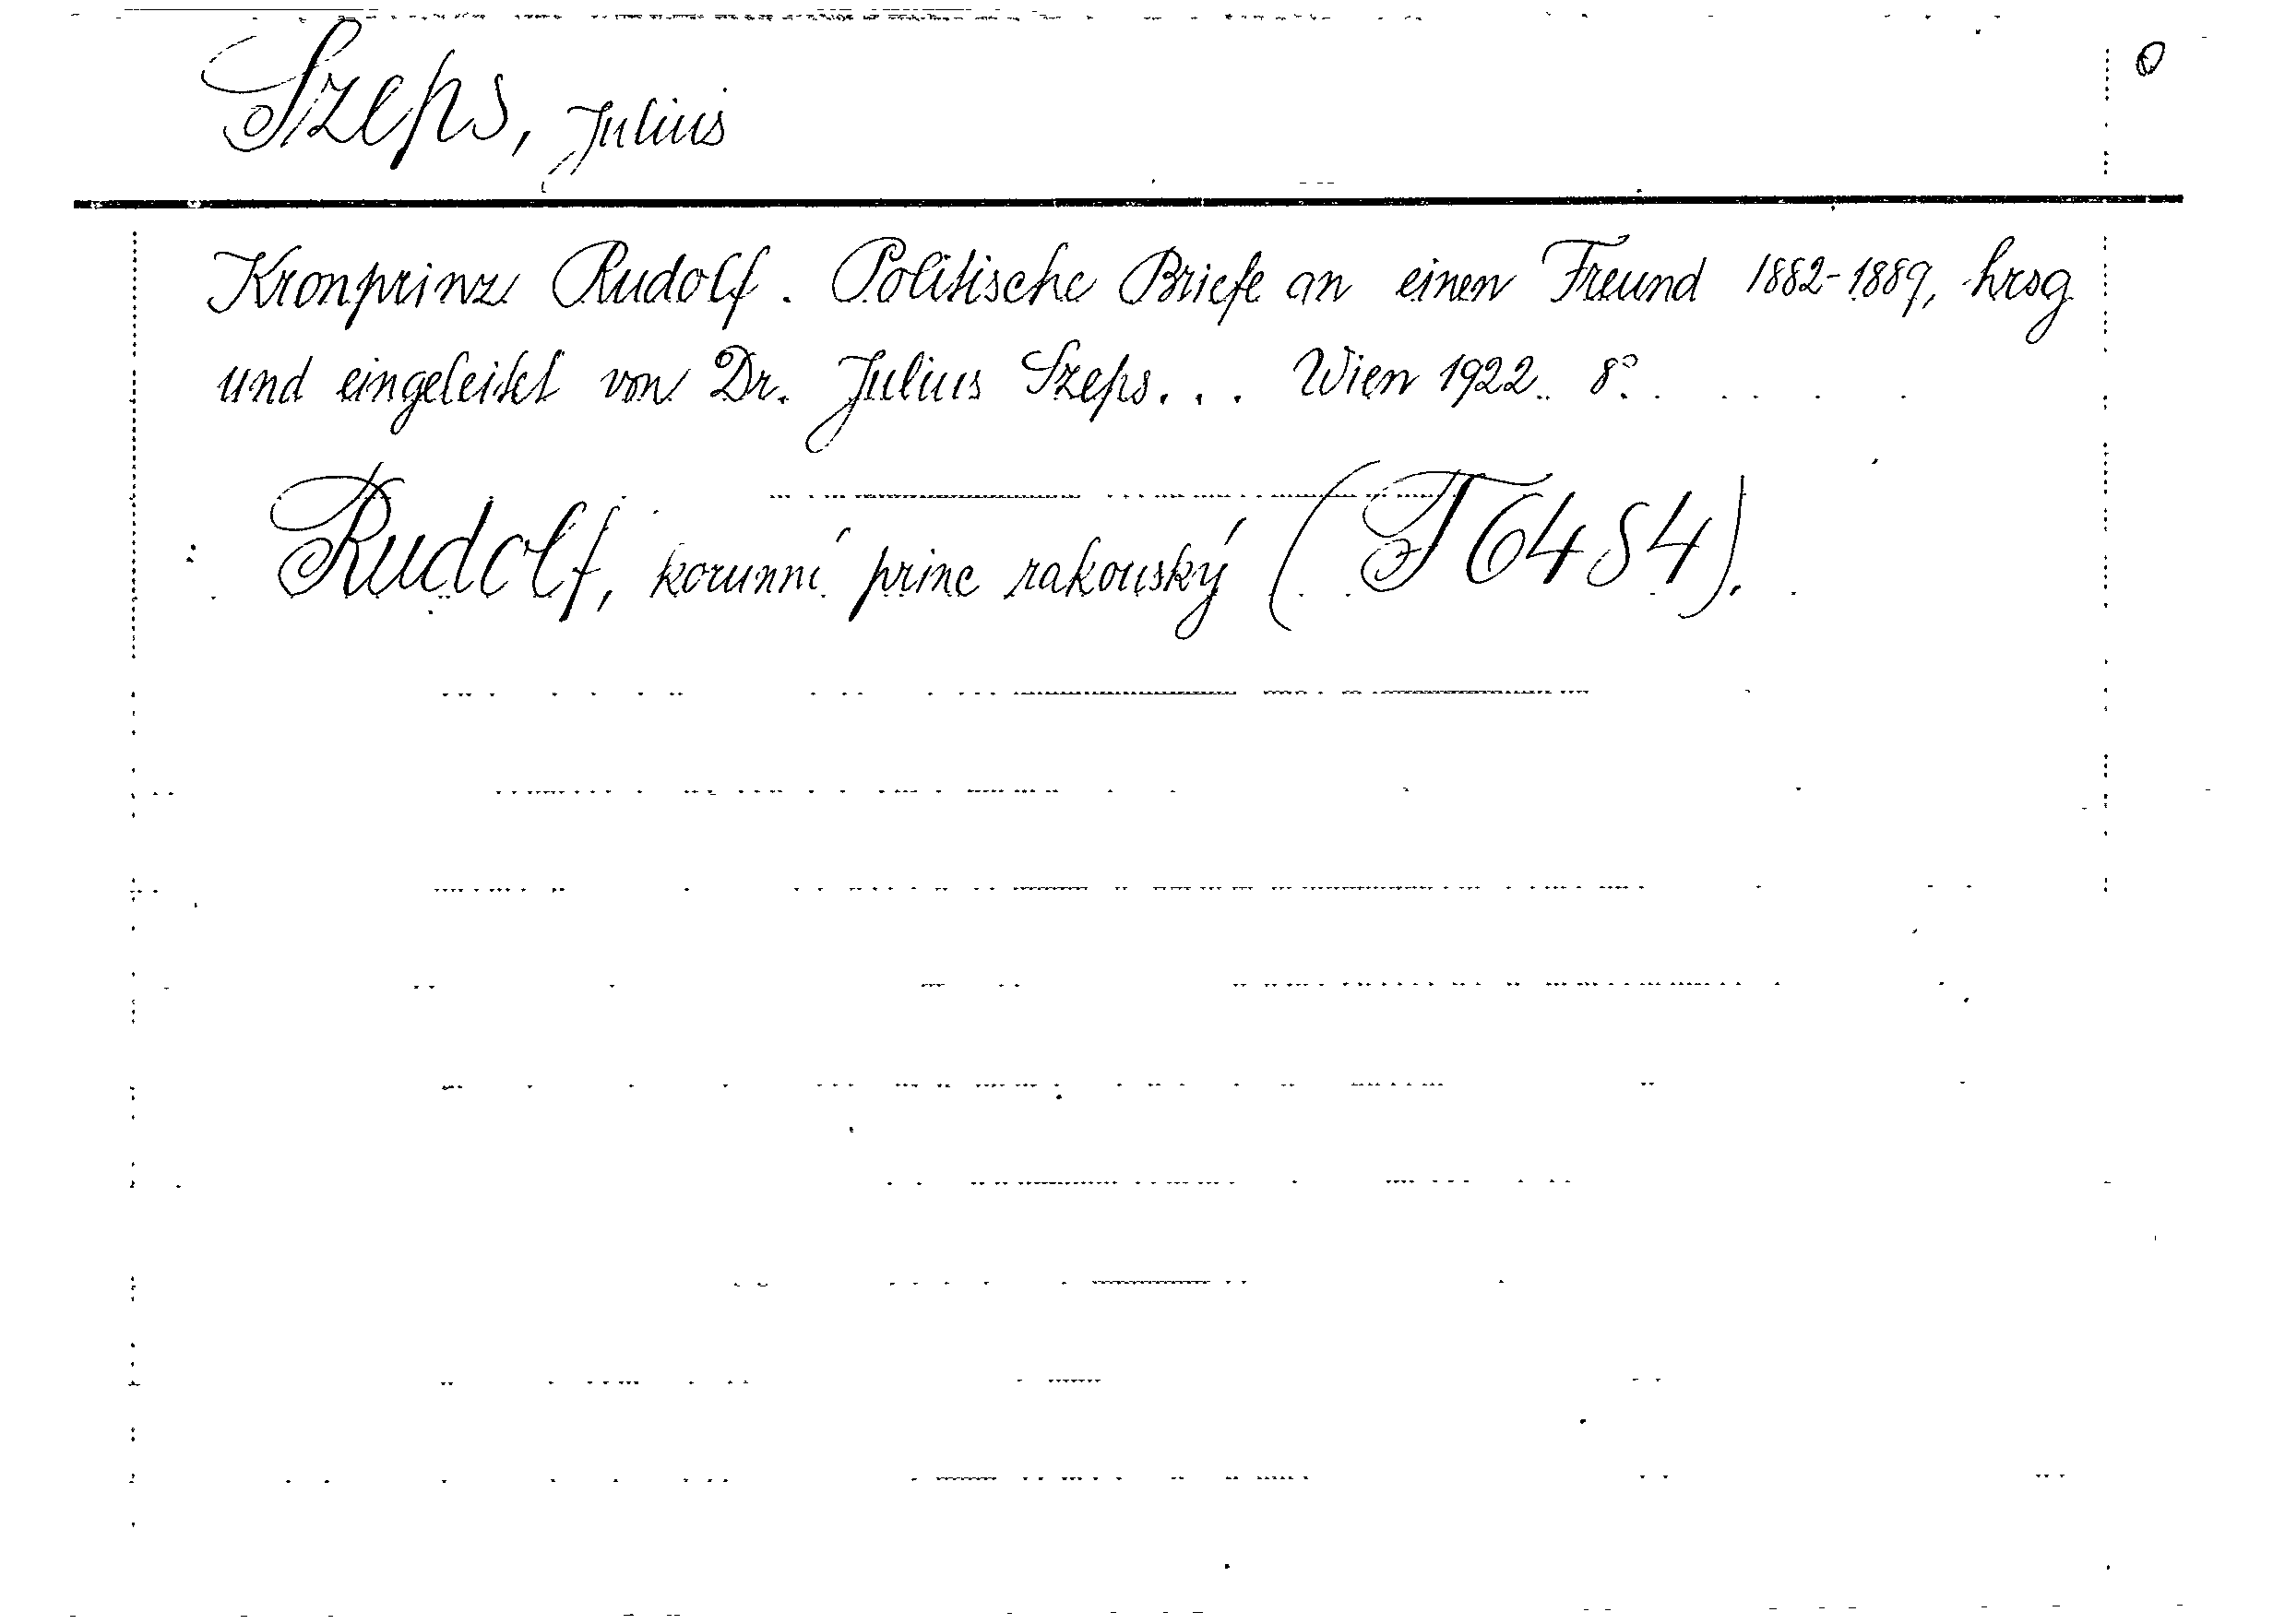 Szeps, Julius
Kronprinz Rudolf. Politische Briefe an einen Freund 1882-1889, hrsg
und eingeleitet von Dr. Julius Szeps... Wien 1922. 8°.
Rudolf, korunní princ rakouský (T6484).